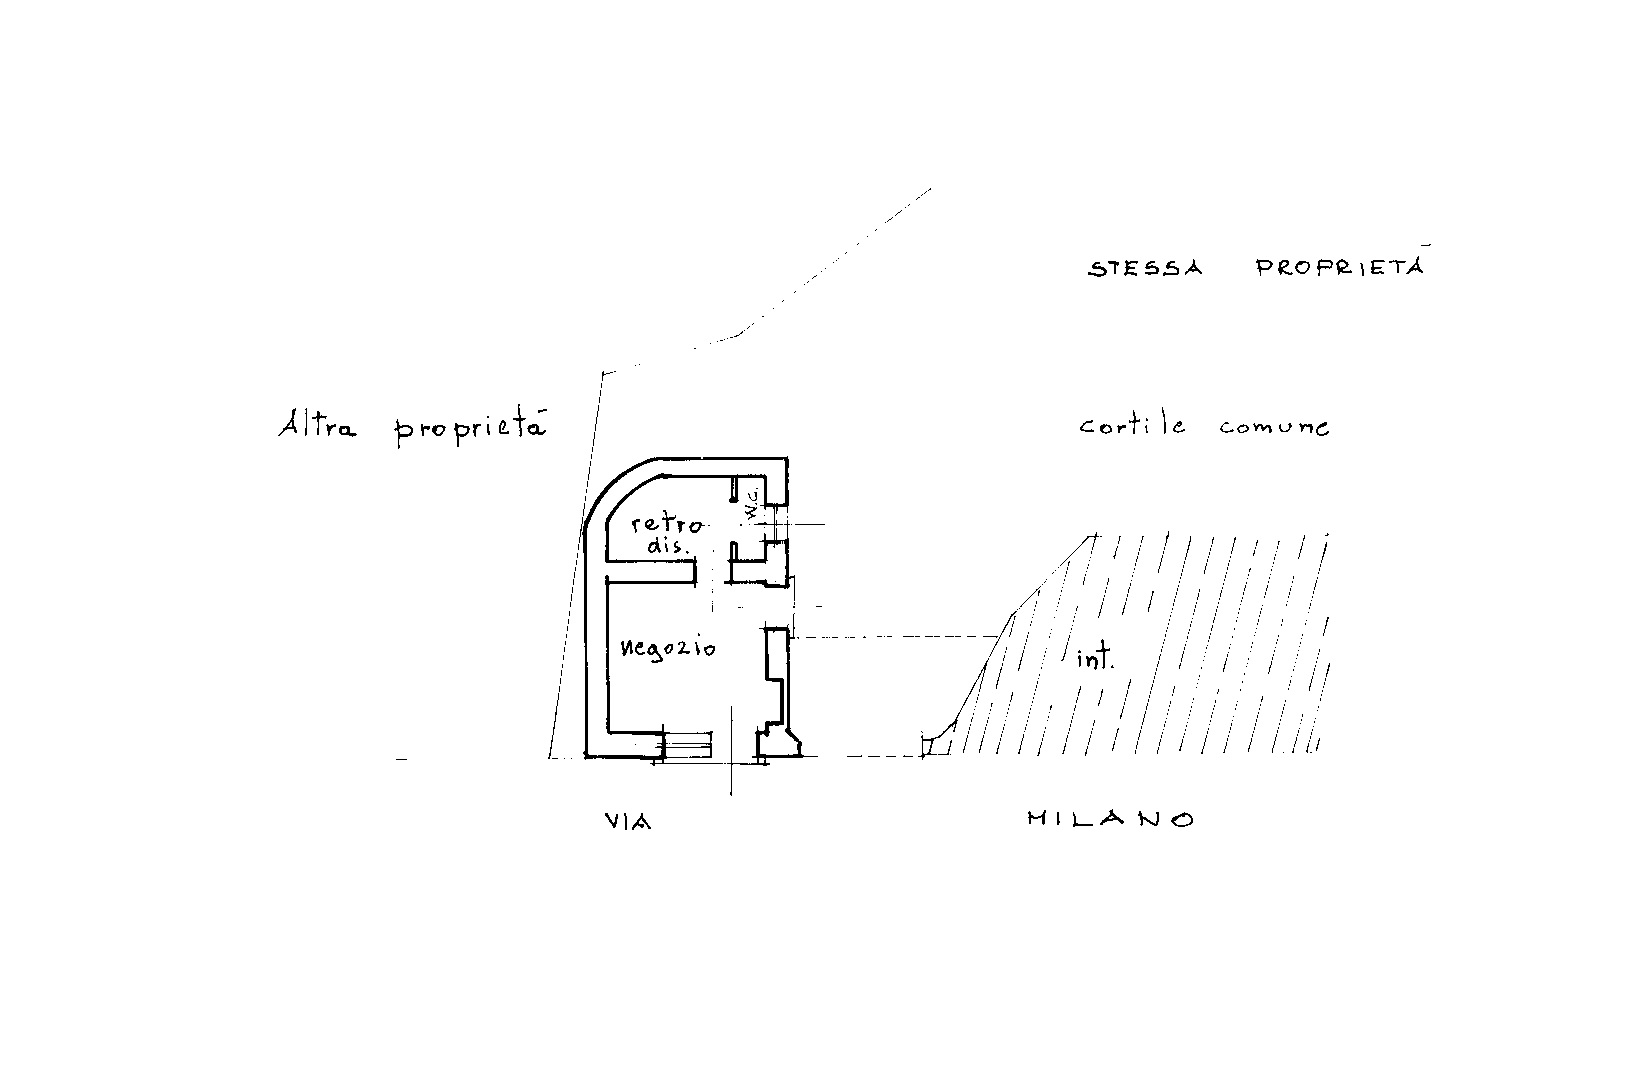 STESSA PROPRIETÁ
Altra proprietá
cortile comune
W.C.
retro
dis.
negozio
int.
VIA MILANO